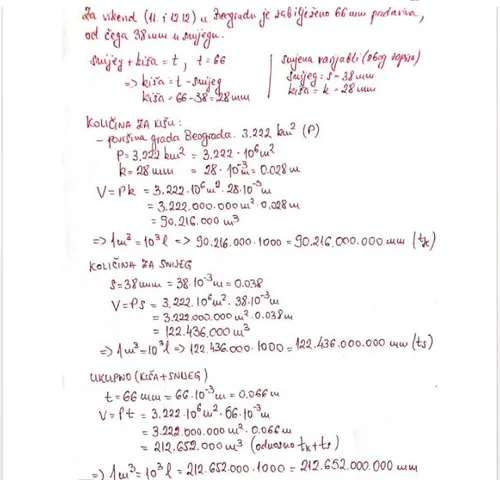 Za vikend (11. i 12.12) u Beogradu je zabilježeno 66 mm padavina,
od čega 38 mm u snijegu.
snijeg + kiša = t, t = 66
=> kiša = t - snijeg
kiša = 66 - 38 = 28 mm
smjena varijabli (zbog zapisa)
snijeg = s = 38 mm
kiša = k = 28 mm
KOLIČINA ZA KIŠU:
- površina grada Beograda. 3.222 km² (P)
P = 3.222 km² = 3.222 · 10⁶ m²
k = 28 mm = 28 · 10⁻³ m = 0.028 m
V = P k = 3.222 · 10⁶ m² · 28 · 10⁻³ m
= 3.222.000.000 m² · 0,028 m
= 90.216.000 m³
=> 1 m³ = 10³ l => 90.216.000 · 1000 = 90.216.000.000 mm (tk)
KOLIČINA ZA SNIJEG
S = 38 mm = 38 · 10⁻³ m = 0.038
V = P s = 3.222 · 10⁶ m² · 38 · 10⁻³ m
= 3.222.000.000 m² · 0.038 m
= 122.436.000 m³
=> 1 m³ = 10³ l => 122.436.000 · 1000 = 122.436.000.000 mm (ts)
UKUPNO (KIŠA + SNIJEG)
t = 66 mm = 66 · 10⁻³ m = 0.066 m
V = P t = 3.222 · 10⁶ m² · 66 · 10⁻³ m
= 3.222.000.000 m² · 0.066 m
= 212.652.000 m³ (odnosno tk + ts)
=> 1 m³ = 10³ l = 212.652.000 · 1000 = 212.652.000.000 mm